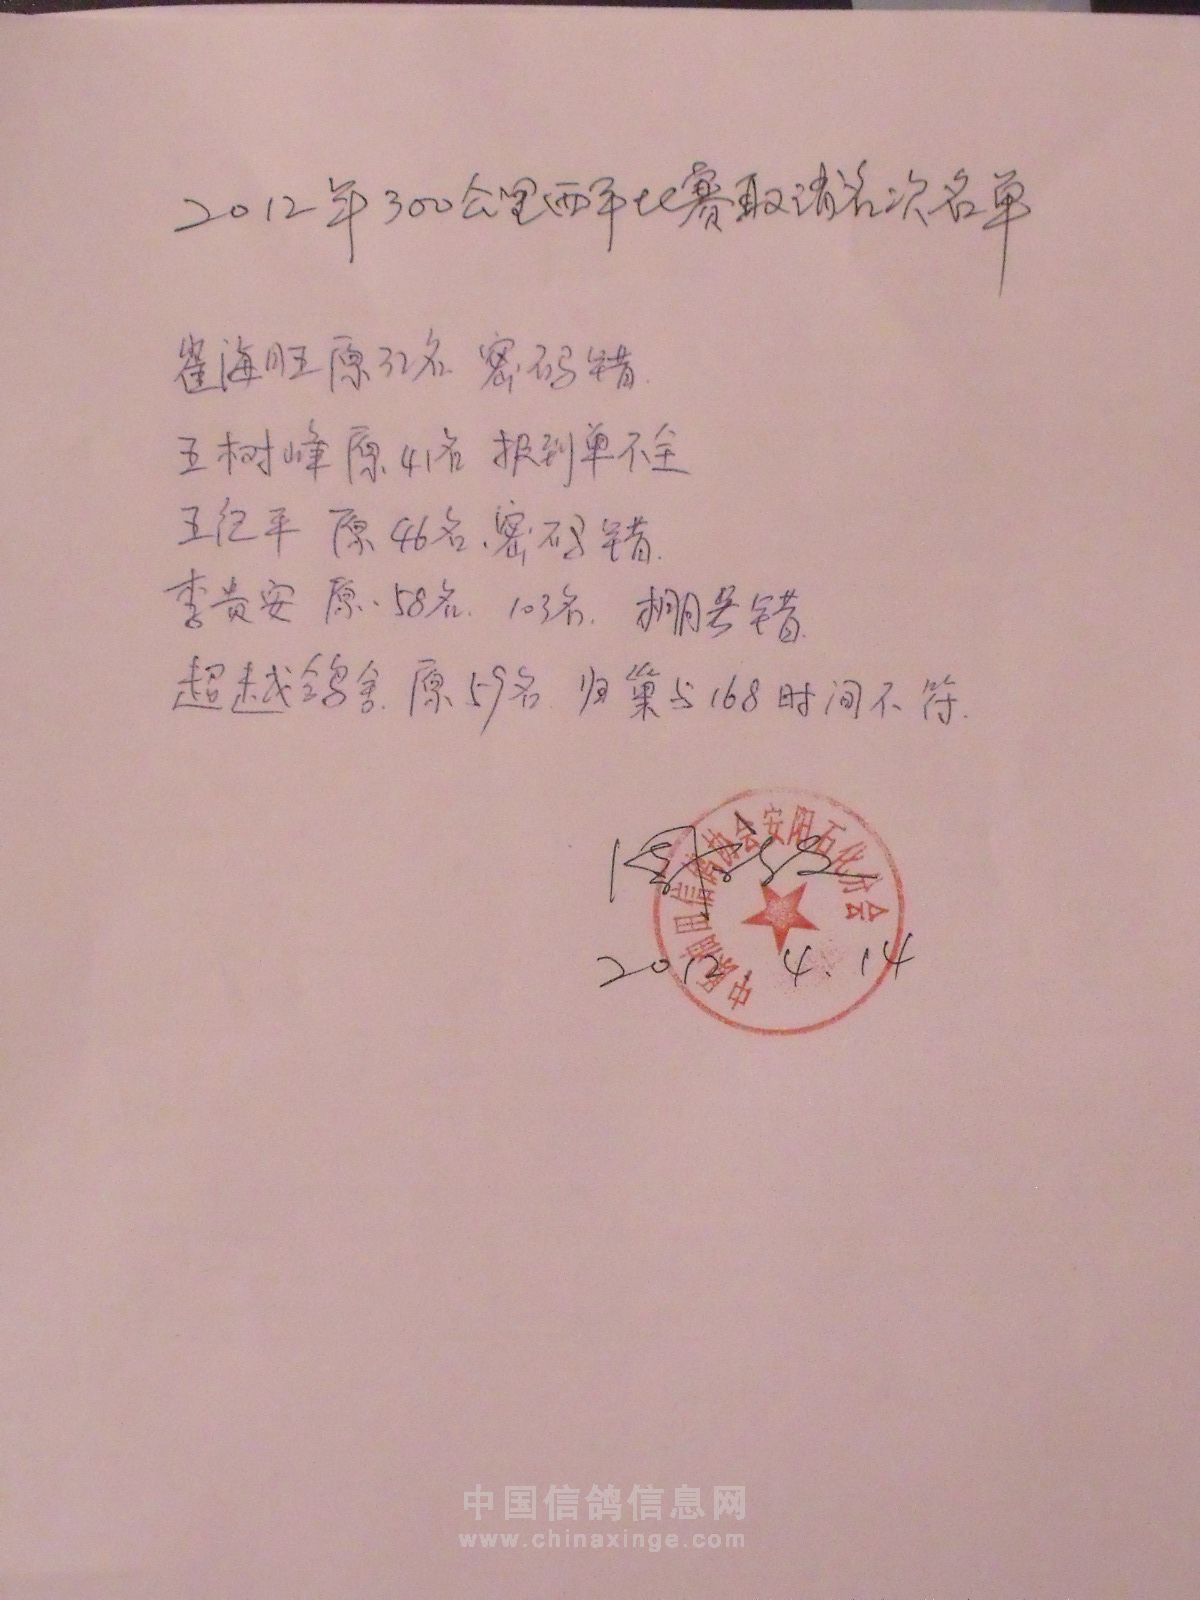 2012年300公里西平比赛取消名次名单
崔海旺 原32名 密码错.
王树峰 原41名 报到单不全
王纪平 原46名.密码错.
李贵安 原.58名. 103名. 棚号错.
超越鸽舍.原59名.归巢与168时间不符.
中原油田信鸽协会安阳石化分会
2012. 4. 14
中国信鸽信息网
www.chinaxinge.com